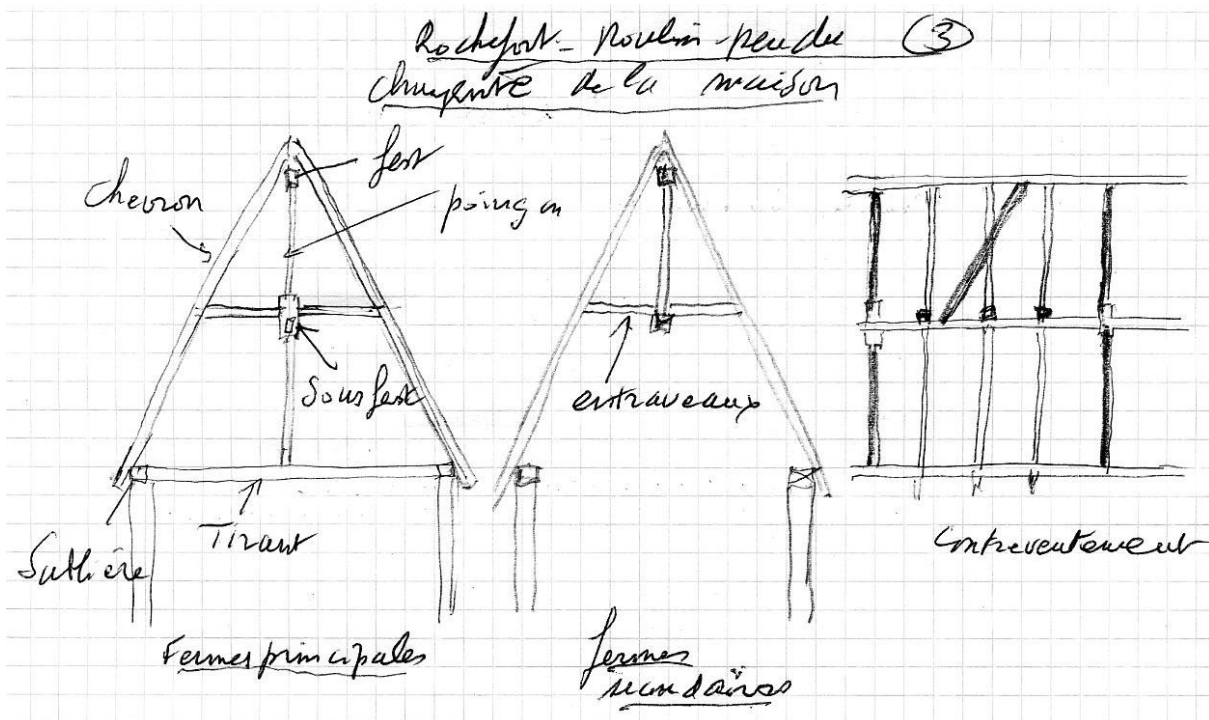 Rochefort - Moulin - pendu ③
Charpente de la maison
fest
Chevron
poinçon
Sous fest
entraveaux
Tirant
Sablière
Contreventement
Fermes principales
fermes
secondaires